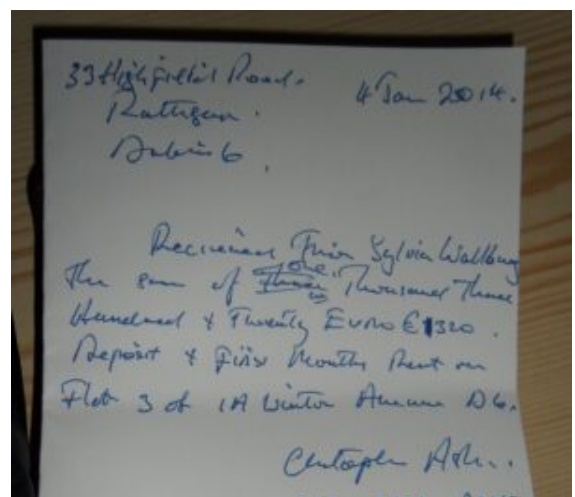 33 Highfield Road.
Rathgar. 4 Jan 2014.
Dublin 6.
Received From Sylvia Wallburg
one
The sum of Three Thousand Three
Hundred & Twenty Euro €1320.
Deposit & First Months Rent on
Flat 3 of 1A Winton Avenue D6.
Christopher